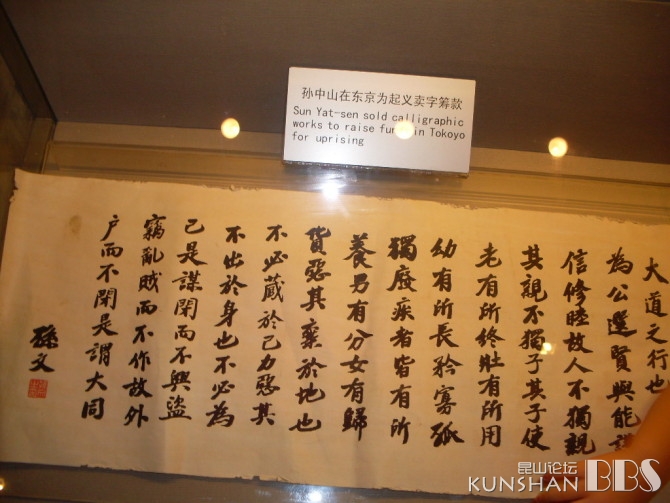 孙中山在东京为起义卖字筹款
Sun Yat-sen sold calligraphic
works to raise in Tokoyo
for uprising
大道之行也
為公選賢與能講
信修睦故人不獨親
其親不獨子其子使
老有所終壯有所用
幼有所長矜寡孤
獨廢疾者皆有所
養男有分女有歸
貨惡其棄於地也
不必藏於己力惡其
不出於身也不必為
己是謀閉而不興盜
竊亂賊而不作故外
户而不閉是謂大同
孫文
昆山论坛
KUNSHAN BBS